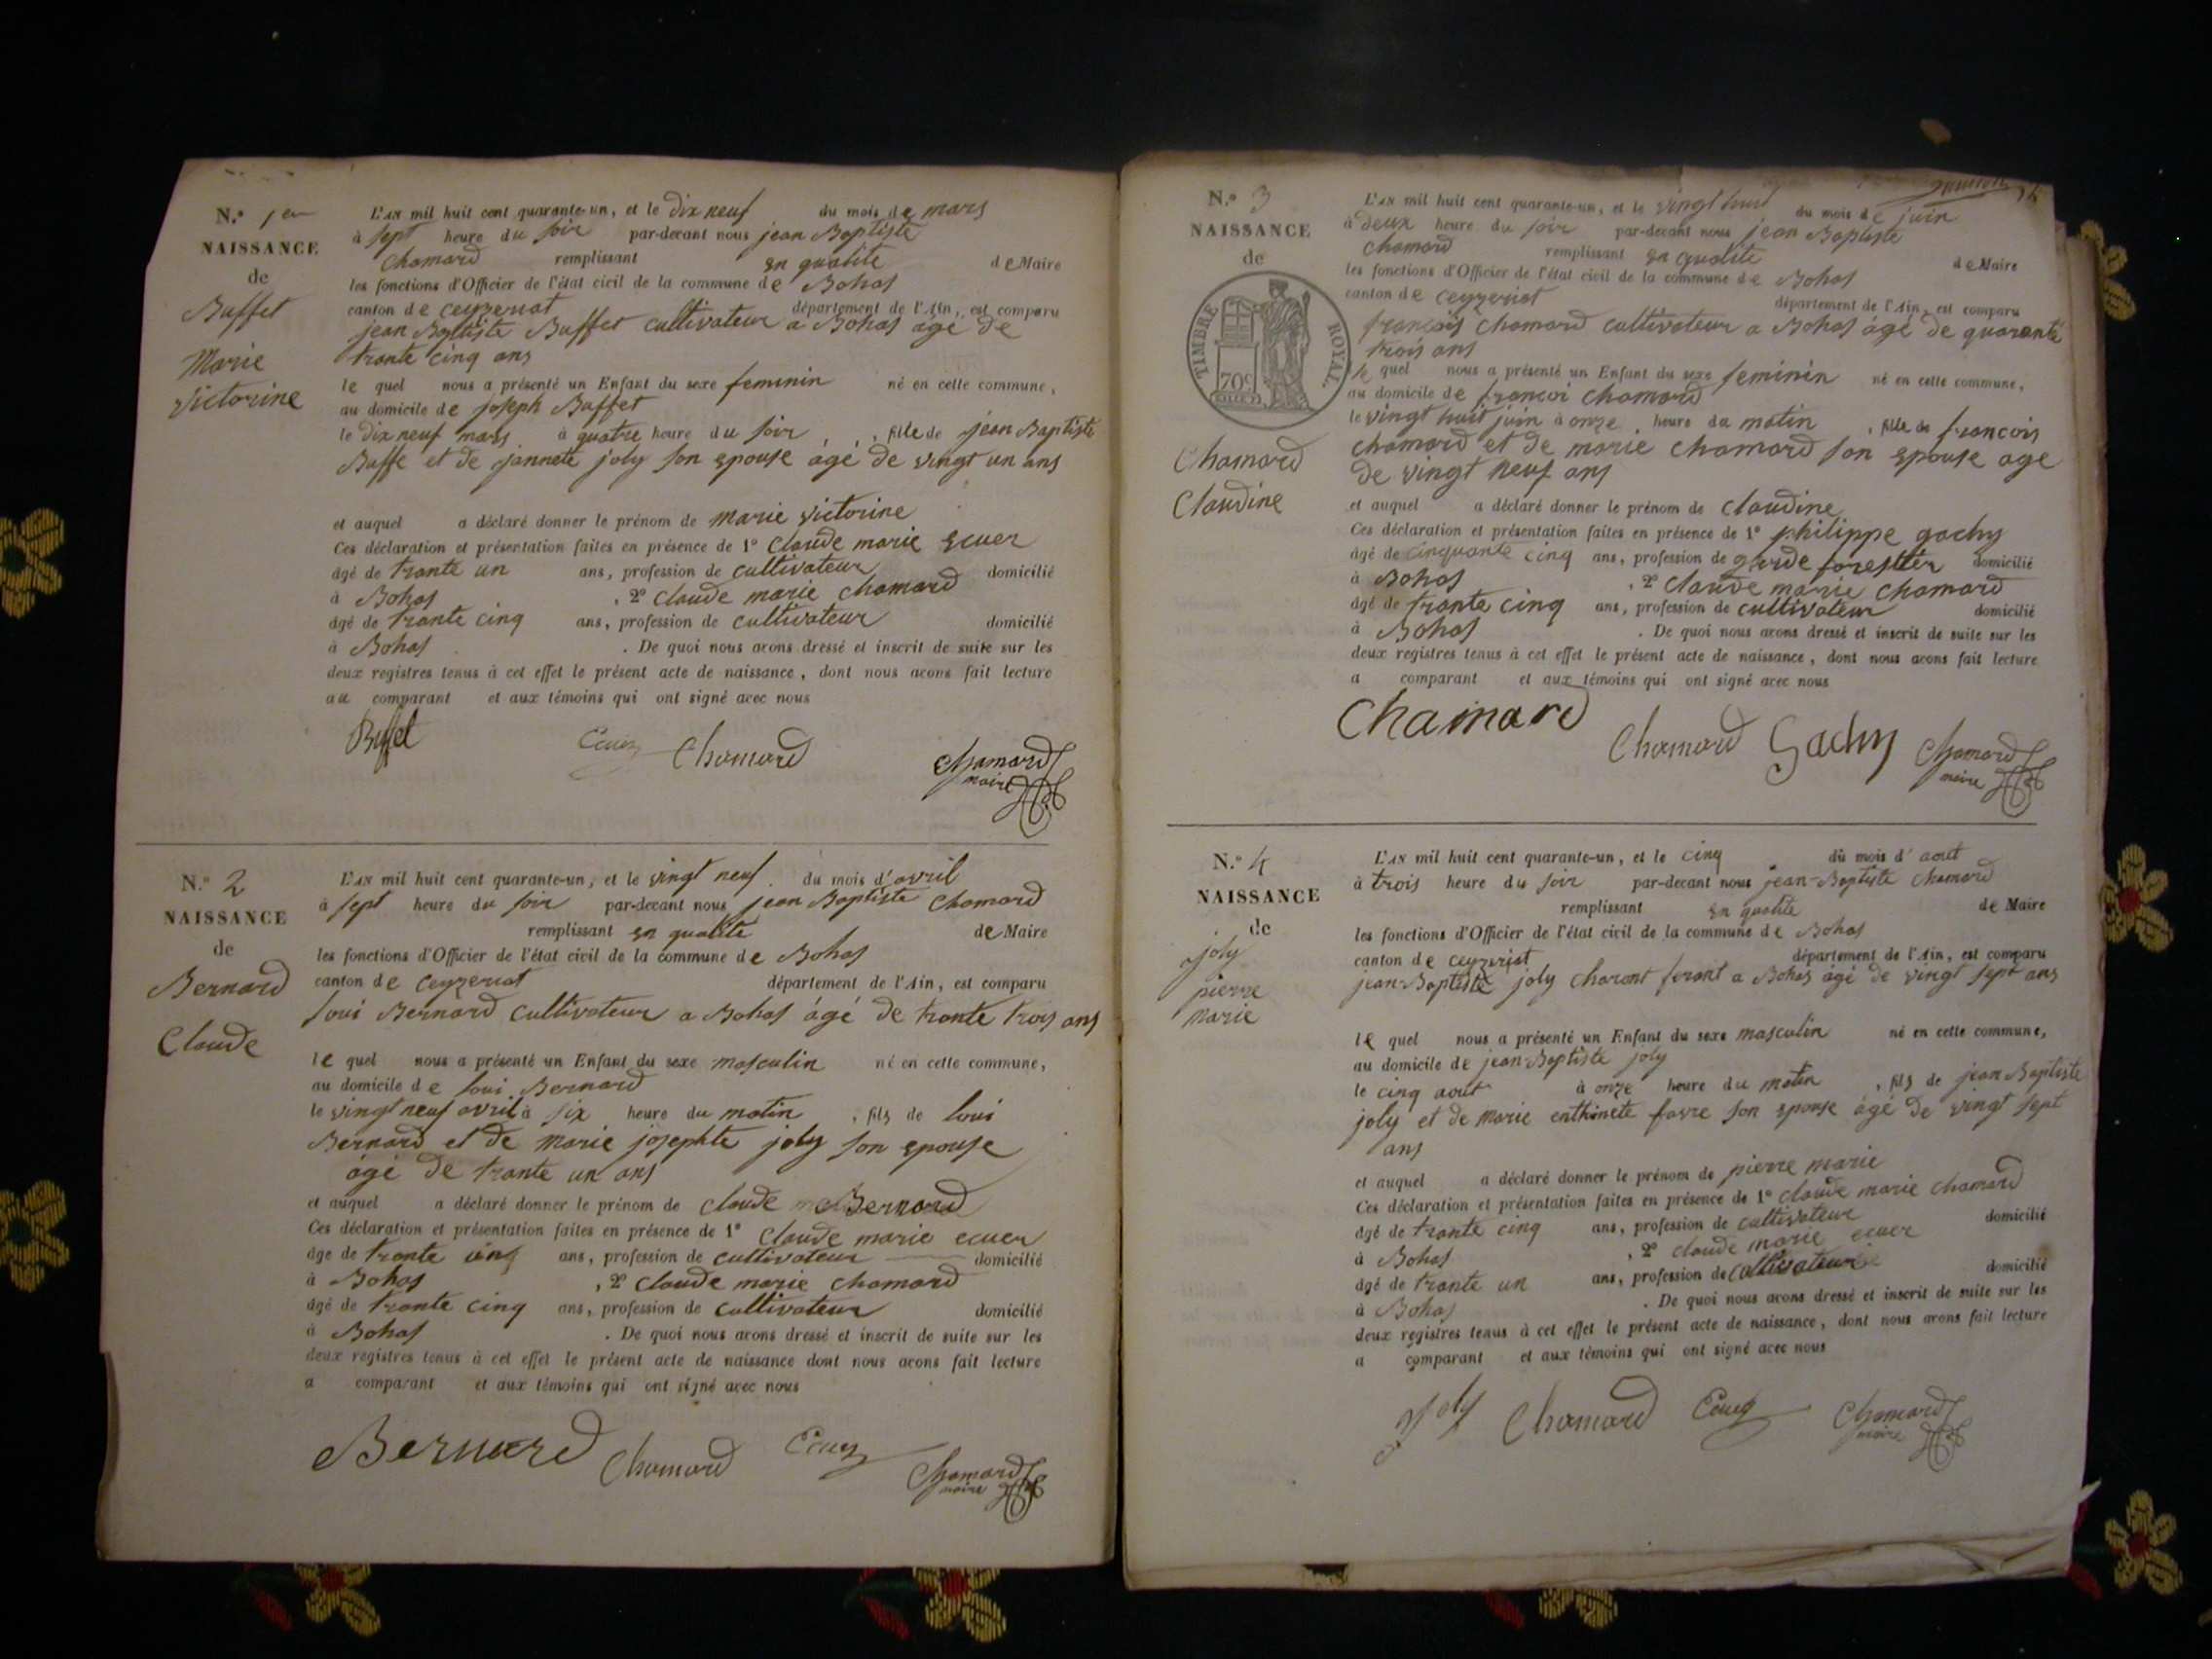 N.o 1er
NAISSANCE
de
Buffet
Marie
victorine
L'AN mil huit cent quarante-un, et le Dix neuf du mois de mars
à sept heure du soir par-devant nous jean Baptiste
Chamard remplissant en qualité de Maire
les fonctions d'Officier de l'état civil de la commune de Bohas
canton de ceyzeriat département de l'Ain, est comparu
jean Baptiste Buffet cultivateur a Bohas agé de
trante cinq ans
le quel nous a présenté un Enfant du sexe feminin né en cette commune,
au domicile de joseph Buffet
le Dix neuf mars à quatre heure du soir, fille de jean Baptiste
Buffe et de jannete joly son epouse agé de vingt un ans
et auquel a déclaré donner le prénom de marie victorine
Ces déclaration et présentation faites en présence de 1o claude marie ecuer
âgé de trante un ans, profession de cultivateur domicilié
à Bohas, 2o claude marie chamard
âgé de trante cinq ans, profession de cultivateur domicilié
à Bohas. De quoi nous avons dressé et inscrit de suite sur les
deux registres tenus à cet effet le présent acte de naissance, dont nous avons fait lecture
au comparant et aux témoins qui ont signé avec nous
Buffet Ecuer Chamard Chamard
maire
N.o 2
NAISSANCE
de
Bernard
Claude
L'AN mil huit cent quarante-un, et le vingt neuf du mois d'avril
à sept heure du soir par-devant nous jean Baptiste Chamard
remplissant en qualité de Maire
les fonctions d'Officier de l'état civil de la commune de Bohas
canton de ceyzeriat département de l'Ain, est comparu
loui Bernard cultivateur a Bohas âgé de trante trois ans
le quel nous a présenté un Enfant du sexe masculin né en cette commune,
au domicile de loui Bernard
le vingt neuf avril à six heure du matin, fils de loui
Bernard et de marie josephte joly son epouse
âgé de trante un ans
et auquel a déclaré donner le prénom de claude Bernard
Ces déclaration et présentation faites en présence de 1o claude marie ecuer
âgé de trante cinq ans, profession de cultivateur domicilié
à Bohas, 2o claude marie chamard
âgé de trante cinq ans, profession de cultivateur domicilié
à Bohas. De quoi nous avons dressé et inscrit de suite sur les
deux registres tenus à cet effet le présent acte de naissance dont nous avons fait lecture
a comparant et aux témoins qui ont signé avec nous
Bernard Chamard Ecuer Chamard
maire
N.o 3
NAISSANCE
de
TIMBRE ROYAL.
70c
Chamard
Claudine
L'AN mil huit cent quarante-un, et le vingt huit du mois de juin
à deux heure du soir par-devant nous jean Baptiste
chamard remplissant en qualité de Maire
les fonctions d'Officier de l'état civil de la commune de Bohas
canton de ceyzeriat département de l'Ain, est comparu
françois chamard cultivateur a Bohas âgé de quarante
trois ans
le quel nous a présenté un Enfant du sexe feminin né en cette commune,
au domicile de françoi chamard
le vingt huit juin à onze heure du matin, fille de françois
chamard et de marie chamard son epouse age
de vingt neuf ans
et auquel a déclaré donner le prénom de claudine
Ces déclaration et présentation faites en présence de 1o philippe gachy
âgé de cinquante cinq ans, profession de garde forestier domicilié
à Bohas, 2o claude marie chamard
âgé de trante cinq ans, profession de cultivateur domicilié
à Bohas. De quoi nous avons dressé et inscrit de suite sur les
deux registres tenus à cet effet le présent acte de naissance, dont nous avons fait lecture
a comparant et aux témoins qui ont signé avec nous
Chamard Chamard Gachy Chamard
maire
N.o 4
NAISSANCE
de
joly
pierre
marie
L'AN mil huit cent quarante-un, et le cinq du mois d'aout
à trois heure du soir par-devant nous jean-Baptiste chamard
remplissant en qualité de Maire
les fonctions d'Officier de l'état civil de la commune de Bohas
canton de ceyzeriat département de l'Ain, est comparu
jean-Baptiste joly a Bohas âgé de vingt sept ans
le quel nous a présenté un Enfant du sexe masculin né en cette commune,
au domicile de jean-Baptiste joly
le cinq aout à onze heure du matin, fils de jean Baptiste
joly et de marie favre son epouse âgé de vingt sept
ans
et auquel a déclaré donner le prénom de pierre marie
Ces déclaration et présentation faites en présence de 1o claude marie chamard
âgé de trante cinq ans, profession de cultivateur domicilié
à Bohas, 2o claude marie ecuer
âgé de trante un ans, profession de cultivateur domicilié
à Bohas. De quoi nous avons dressé et inscrit de suite sur les
deux registres tenus à cet effet le présent acte de naissance, dont nous avons fait lecture
a comparant et aux témoins qui ont signé avec nous
Joly Chamard Ecuer Chamard
maire